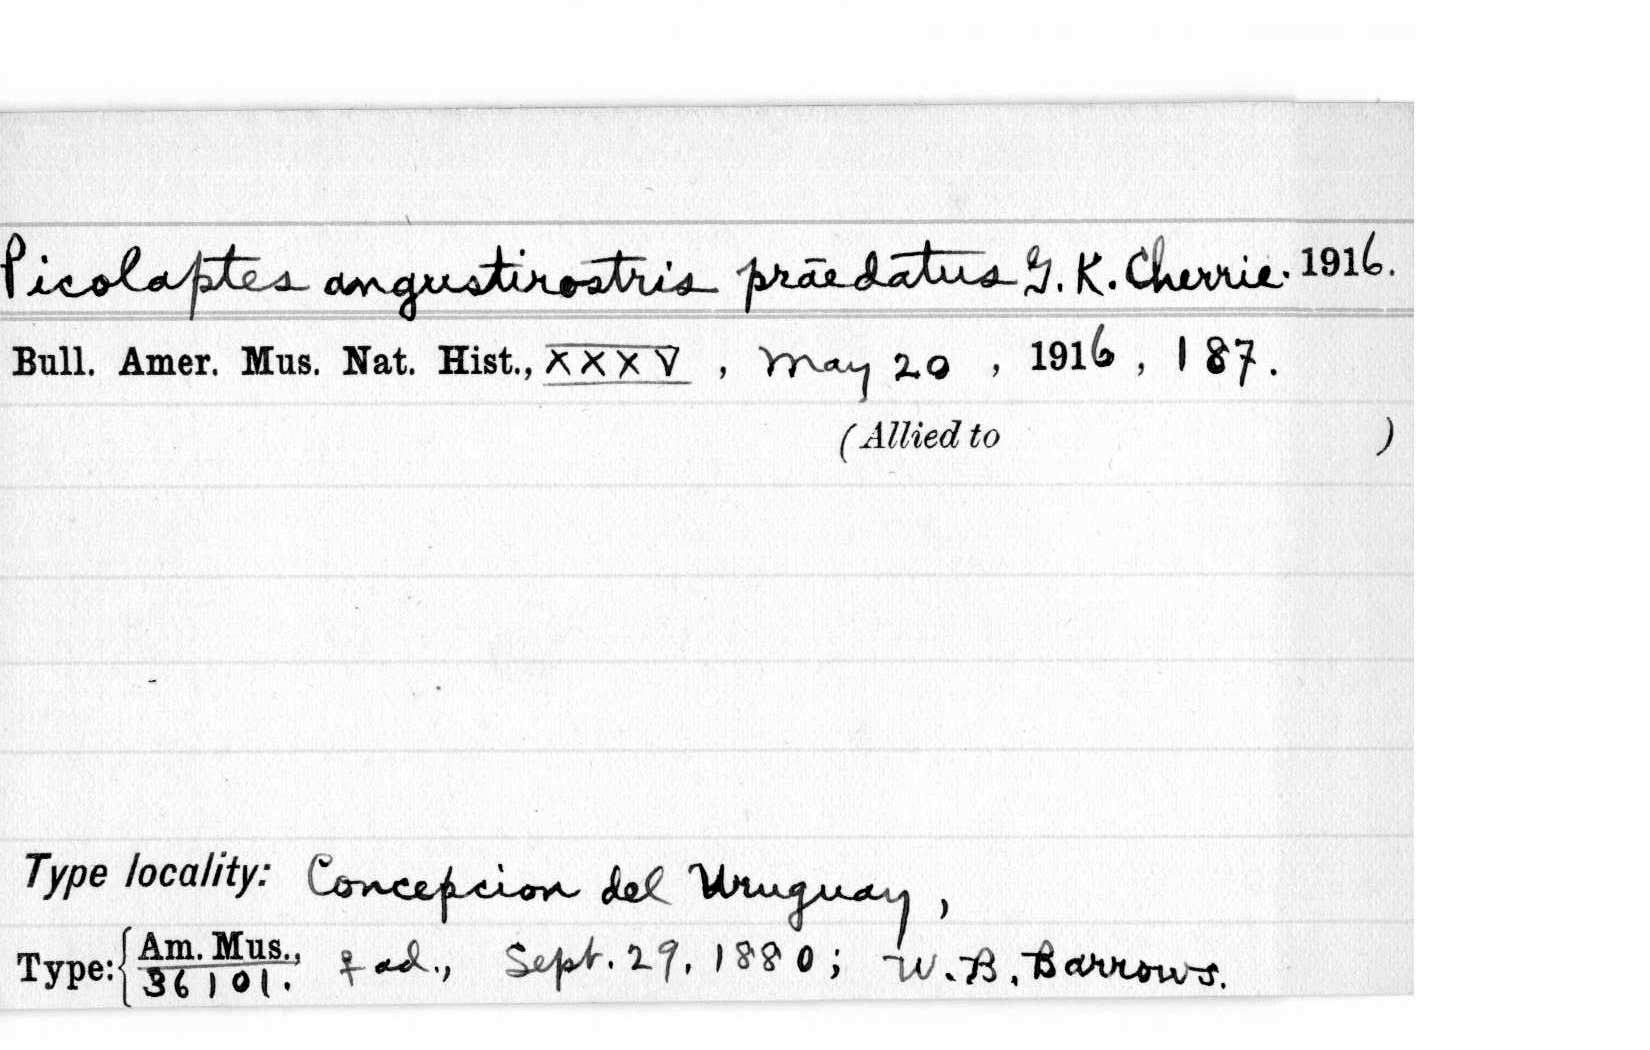 Picolaptes angustirostris prāedatus G. K. Cherrie. 1916.
Bull. Amer. Mus. Nat. Hist., XXXV, May 20, 1916, 187.
(Allied to )
Type locality: Concepcion del Uruguay,
Type: { Am. Mus., 36101. ♀ ad., Sept. 29, 1880; W. B. Barrows.